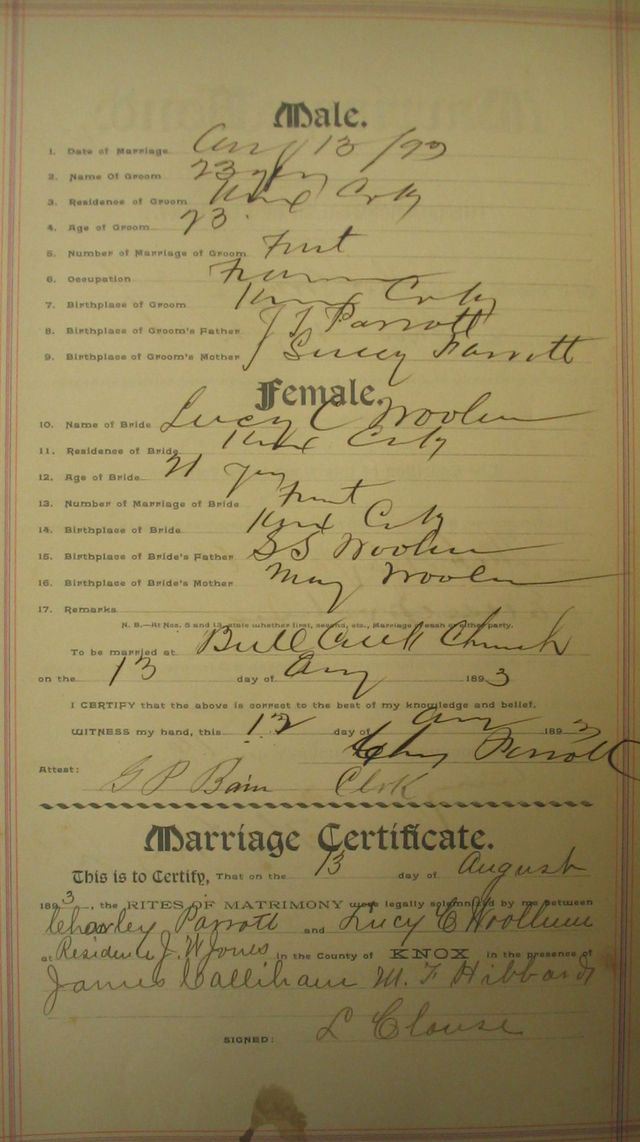 Male.
1. Date of Marriage Aug 13/93
2. Name Of Groom 23 yrs
3. Residence of Groom Knox Co Ky
4. Age of Groom 23
5. Number of Marriage of Groom First
6. Occupation Farmer
7. Birthplace of Groom Knox Co Ky
8. Birthplace of Groom's Father J T Parrott
9. Birthplace of Groom's Mother Lucey Parrott
Female.
10. Name of Bride Lucy C Woolum
11. Residence of Bride Knox Co Ky
12. Age of Bride 21 yrs
13. Number of Marriage of Bride First
14. Birthplace of Bride Knox Co Ky
15. Birthplace of Bride's Father S S Woolum
16. Birthplace of Bride's Mother May Woolum
17. Remarks
N. B.—At Nos. 5 and 13, state whether first, second, etc., Marriage of each or either party.
To be married at Bull Creek Church
on the 13 day of Aug 1893
I CERTIFY that the above is correct to the best of my knowledge and belief.
WITNESS my hand, this 12 day of Aug 1893
Parrott
Attest: G P Bain Clerk
Marriage Certificate.
This is to Certify, That on the 13 day of August
1893, the RITES OF MATRIMONY were legally solemnized by me between
Charley Parrott and Lucy C Woollum
at Residence J. W Jones in the County of KNOX in the presence of
James Callihan M. F Hibbard
SIGNED: L Clouse